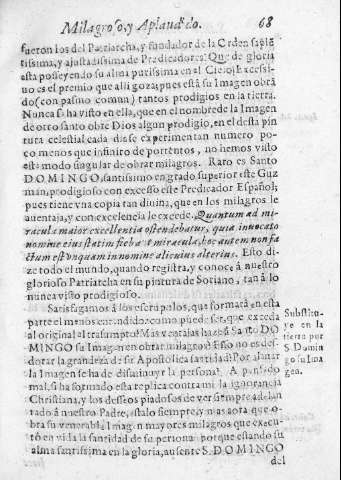 Milagroso, y Aplaudido. 68
fueron los del Patriarcha, y fundador de la Orden sapiē
tissima, y ajustadissima de Predicadores. Que de gloria
està posseyendo su alma purissima en el Cielo! Excessi-
uo es el premio que alli goza; pues està su Imagen obrā
do (con pasmo comun) tantos prodigios en la tierra.
Nunca se ha visto en ella, que en el nombre de la Imagen
de otro santo obre Dios algun prodigio, en el desta pin
tura celestial cada dia se experimentan numero po-
co menos que infinito de portentos, no hemos visto
este modo singular de obrar milagros. Raro es Santo
DOMINGO, santissimo en grado superior este Guz
man, prodigioso con excesso este Predicador Español;
pues tiene vna copia tan diuina, que en los milagros le
auentaja, y con excelencia le excede. Quantum ad mi-
racula maior excellentia ostendebatur, quia inuocato
nomine eius statim fiebant miracula, hoc autem non fa
ctum est vnquam in nomine alicuius alterius. Esto di-
ze todo el mundo, quando registra, y conoce à nuestro
glorioso Patriarcha en su pintura de Soriano, tan à lo
nunca visto prodigioso.
Satisfagamos à los escrupulos, que formarà en esta
parte el menos entendido: como puede ser, que exceda
al original el trasumpto? Mas ventajas haze à Santo DO
MINGO su Imagen en obrar milagros? Esso no es des-
dorar la grandeza de su Apostolica santidad? Por alabar
la Imagen se ha de disminuyr la persona? A partido
mal, si ha formado esta replica contra mi la ignorancia
Christiana, y los desseos piadosos de ver siempre adelan
tado à nuestro Padre, estalo siempre, y mas aora que o-
bra su venerable Imagen mayores milagros que execu-
tò en vida la santidad de su persona porque estando su
alma santissima en la gloria, ausente S. DOMINGO
del
Substitu-
ye en la
tierra por
S. Domin
go su Ima
gen.